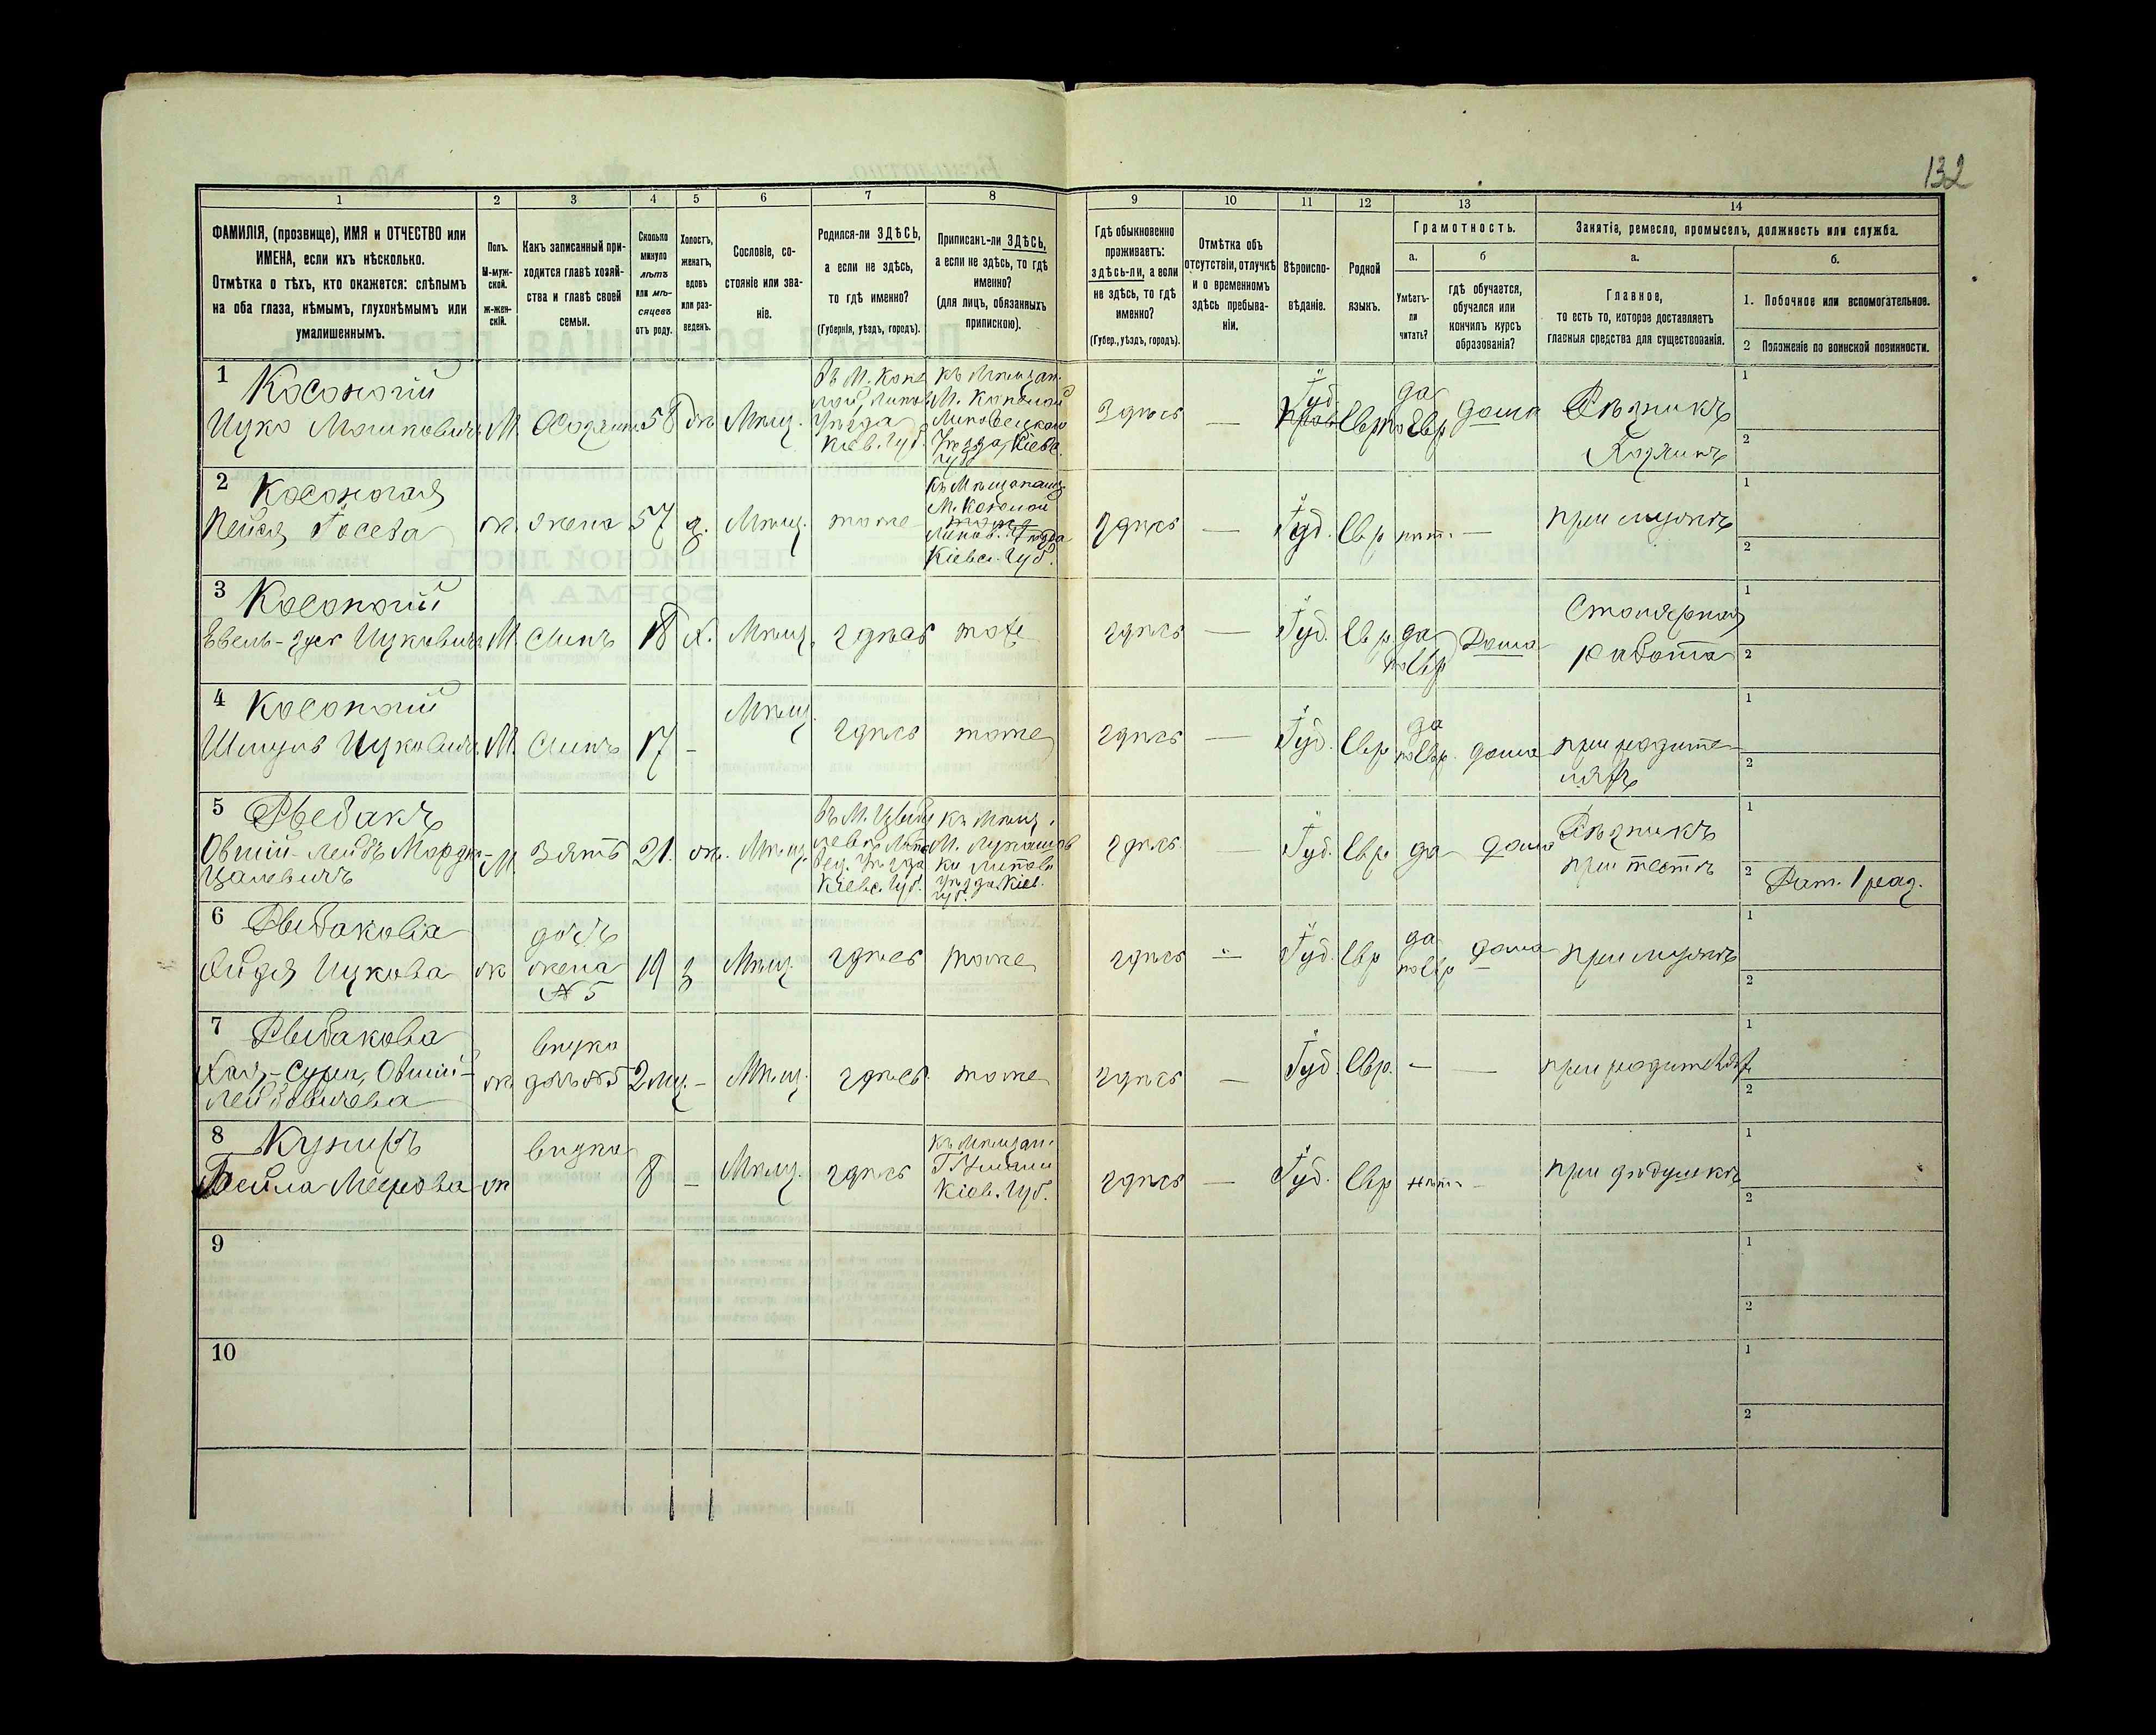 132
1 2 3 4 5 6 7 8 9 10 11 12 13 14
ФАМИЛІЯ, (прозвище), ИМЯ и ОТЧЕСТВО или
ИМЕНА, если ихъ нѣсколько.
Отмѣтка о тѣхъ, кто окажется: слѣпымъ
на оба глаза, нѣмымъ, глухонѣмымъ или
умалишеннымъ.
Полъ.
М-муж-
ской.
ж-жен-
скій.
Какъ записанный при-
ходится главѣ хозяй-
ства и главѣ своей
семьи.
Сколько
минуло
лѣтъ
или мѣ-
сяцевъ
отъ роду.
Холостъ,
женатъ,
вдовъ
или раз-
веденъ.
Сословіе, со-
стояніе или зва-
ніе.
Родился-ли ЗДѢСЬ,
а если не здѣсь,
то гдѣ именно?
(Губернія, уѣздъ, городъ).
Приписанъ-ли ЗДѢСЬ,
а если не здѣсь, то гдѣ
именно?
(для лицъ, обязанныхъ
припискою).
Гдѣ обыкновенно
проживаетъ:
здѣсь-ли, а если
не здѣсь, то гдѣ
именно?
(Губер., уѣздъ, городъ).
Отмѣтка объ
отсутствіи, отлучкѣ
и о временномъ
здѣсь пребыва-
ніи.
Вѣроиспо-
вѣданіе.
Родной
языкъ.
Грамотность.
а.
Умѣетъ-
ли
читать?
б
гдѣ обучается,
обучался или
кончилъ курсъ
образованія?
Занятіе, ремесло, промыселъ, должность или служба.
а.
Главное,
то есть то, которое доставляетъ
главныя средства для существованія.
б.
1. Побочное или вспомогательное.
2 Положеніе по воинской повинности.
1
Косоногій
Ицко Мошковичъ
М.
Хозяинъ
58
ж.
Мѣщ.
Уѣзда
Кіев. Губ.
къ Мѣщан.
Липовецкаго
Уѣзда, Кіевс.
Губ
Здѣсь
—
Іуд.
Евр
да
по Евр
дома
Рѣзникъ
Хозяинъ
1
2
2
Косоногая
Пейся Іосева
ж.
жена
57
з.
Мѣщ.
тоже
къ Мѣщанамъ
Липов. Уѣзда
Кіевс. Губ.
здѣсь
—
Іуд.
Евр
нѣт.
—
при мужѣ
1
2
3
Косоногій
Ицковичъ
М.
Сынъ
18
х.
Мѣщ.
здѣсь
тоже
здѣсь
—
Іуд.
Евр.
да
по Евр
Дома
Столярная
работа
1
2
4
Косоногій
Шмуль Ицковичъ
М.
Сынъ
17
-
Мѣщ.
здѣсь
тоже
здѣсь
—
Іуд.
Евр
да
по Евр.
дома
при родите-
ляхъ
1
2
5
Рыбакъ
Овший-Лейбъ Мордко-
Цалевичъ
М.
Зять
21.
ж.
Мѣщ.
вец. Уѣзда
Кіевс. Губ.
къ Мѣщ.
ки Липов.
Уѣзда Кіев.
Губ.
здѣсь.
—
Іуд.
Евр.
да
дома
Рѣзникъ
при тестѣ
1
2
Рат. 1 раз.
6
Рыбакова
Хайдя Ицкова
ж
дочь
жена
№ 5
19
з
Мѣщ.
здѣсь
тоже
здѣсь
—
Іуд.
Евр
да
по Евр
дома
при мужѣ
1
2
7
Рыбакова
Овший-
Лейбовичева
ж.
внучка
дочь № 5
2 мц
-
Мѣщ.
здѣсь.
тоже
здѣсь
—
Іуд.
Евр.
—
—
при родителях
1
2
8
Куниръ
Бейла Меерова
ж
внучка
8
-
Мѣщ.
здѣсь
къ Мѣщан.
Кіев. Губ.
здѣсь
—
Іуд.
Евр
нѣт
-
при дѣдушкѣ
1
2
9
1
2
10
1
2